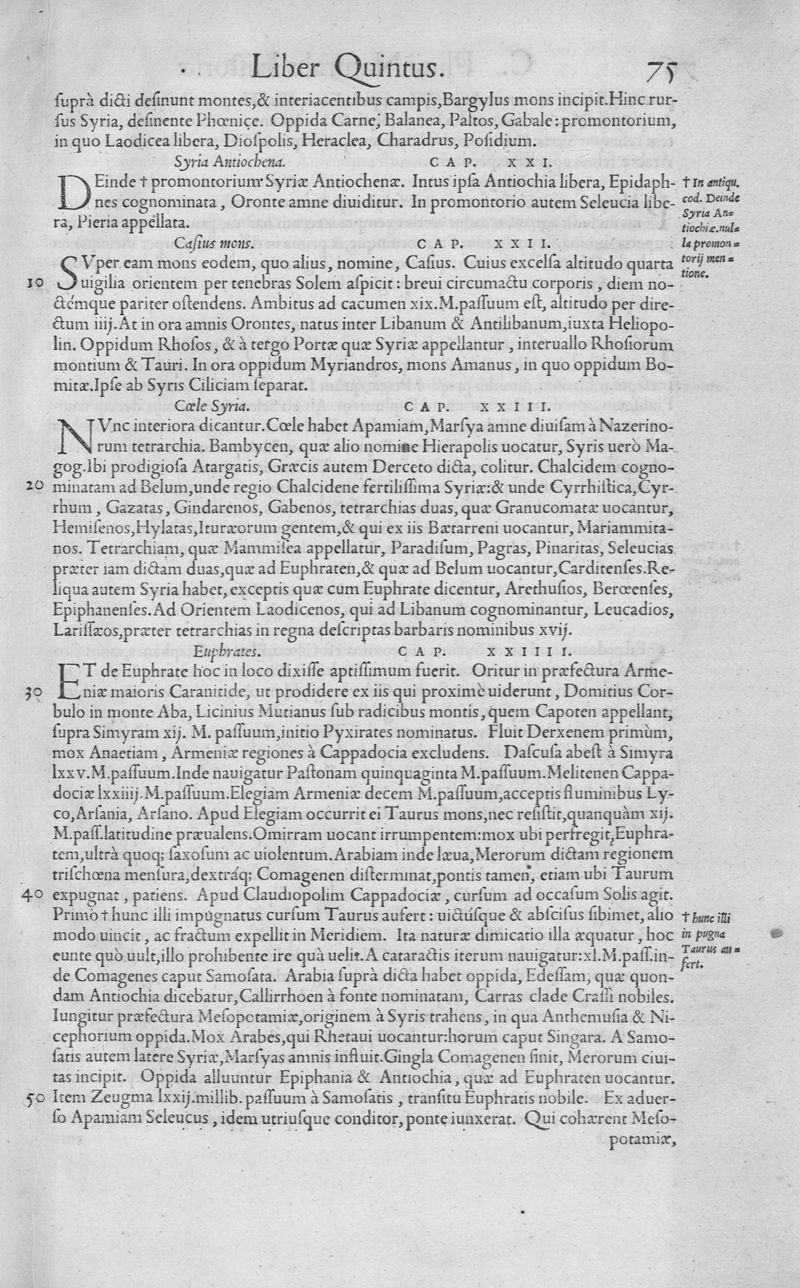 Liber Quintus. 75
ſuprà dicti deſinunt montes,& interiacentibus campis,Bargylus mons incipit.Hinc rur-
ſus Syria, deſinente Phœnice. Oppida Carne, Balanea, Paltos, Gabale: promontorium,
in quo Laodicea libera, Dioſpolis, Heraclea, Charadrus, Poſidium.
Syria Antiochena. CAP. XXI.
DEinde † promontorium Syriæ Antiochenæ. Intus ipſa Antiochia libera, Epidaph-
nes cognominata, Oronte amne diuiditur. In promontorio autem Seleucia libe-
ra, Pieria appellata.
† In antiqu.
cod. Deinde
Syria An=
tiochiæ.nul=
la promon=
torij men=
tione.
Caſius mons. CAP. XXII.
SVper eam mons eodem, quo alius, nomine, Caſius. Cuius excelſa altitudo quarta
10 uigilia orientem per tenebras Solem aſpicit: breui circumactu corporis, diem no-
ctémque pariter oſtendens. Ambitus ad cacumen xix.M.paſſuum eſt, altitudo per dire-
ctum iiij.At in ora amnis Orontes, natus inter Libanum & Antilibanum,iuxta Heliopo-
lin. Oppidum Rhoſos, & à tergo Portæ quæ Syriæ appellantur, interuallo Rhoſiorum
montium & Tauri. In ora oppidum Myriandros, mons Amanus, in quo oppidum Bo-
mitæ.Ipſe ab Syris Ciliciam ſeparat.
Cœle Syria. CAP. XXIII.
NVnc interiora dicantur.Cœle habet Apamiam,Marſya amne diuiſam à Nazerino-
rum tetrarchia. Bambycen, quæ alio nomine Hierapolis uocatur, Syris uerò Ma-
gog.Ibi prodigioſa Atargatis, Græcis autem Derceto dicta, colitur. Chalcidem cogno-
20 minatam ad Belum,unde regio Chalcidene fertiliſſima Syriæ:& unde Cyrrhiſtica,Cyr-
rhum, Gazatas, Gindarenos, Gabenos, tetrarchias duas, quæ Granucomatæ uocantur,
Hemiſenos,Hylatas,Ituræorum gentem,& qui ex iis Bætarreni uocantur, Mariammita-
nos. Tetrarchiam, quæ Mammiſea appellatur, Paradiſum, Pagras, Pinaritas, Seleucias
præter iam dictam duas,quæ ad Euphraten,& quæ ad Belum uocantur,Carditenſes.Re-
liqua autem Syria habet, exceptis quæ cum Euphrate dicentur, Arethuſios, Berœenſes,
Epiphanenſes.Ad Orientem Laodicenos, qui ad Libanum cognominantur, Leucadios,
Lariſſæos,præter tetrarchias in regna deſcriptas barbaris nominibus xvij.
Euphrates. CAP. XXIIII.
ET de Euphrate hoc in loco dixiſſe aptiſſimum fuerit. Oritur in præfectura Arme-
30 niæ maioris Caranitide, ut prodidere ex iis qui proximè uiderunt, Domitius Cor-
bulo in monte Aba, Licinius Mutianus ſub radicibus montis, quem Capoten appellant,
ſupra Simyram xij. M. paſſuum,initio Pyxirates nominatus. Fluit Derxenem primùm,
mox Anaetiam, Armeniæ regiones à Cappadocia excludens. Daſcuſa abeſt à Simyra
lxxv.M.paſſuum.Inde nauigatur Paſtonam quinquaginta M.paſſuum.Melitenen Cappa-
dociæ lxxiiij.M.paſſuum.Elegiam Armeniæ decem M.paſſuum,acceptis fluminibus Ly-
co,Arſania, Arſano. Apud Elegiam occurrit ei Taurus mons,nec reſiſtit,quanquàm xij.
M.paſſ.latitudine præualens.Omirram uocant irrumpentem:mox ubi perfregit,Euphra-
tem,ultrà quoq; ſaxoſum ac uiolentum.Arabiam inde læua,Merorum dictam regionem
triſchœna menſura,dextráq; Comagenen diſterminat,pontis tamen, etiam ubi Taurum
40 expugnat, patiens. Apud Claudiopolim Cappadociæ, curſum ad occaſum Solis agit.
Primò † hunc illi impugnatus curſum Taurus aufert: uictúſque & abſciſus ſibimet, alio
modo uincit, ac fractum expellit in Meridiem. Ita naturæ dimicatio illa æquatur, hoc
eunte quò uult,illo prohibente ire quà uelit.A cataractis iterum nauigatur:xl.M.paſſ.in-
de Comagenes caput Samoſata. Arabia ſuprà dicta habet oppida, Edeſſam, quæ quon-
dam Antiochia dicebatur,Callirrhoen à fonte nominatam, Carras clade Craſſi nobiles.
Iungitur præfectura Meſopotamiæ,originem à Syris trahens, in qua Anthemuſia & Ni-
cephorium oppida.Mox Arabes,qui Rhetaui uocantur:horum caput Singara. A Samo-
ſatis autem latere Syriæ,Marſyas amnis influit.Gingla Comagenen finit, Merorum ciui-
tas incipit. Oppida alluuntur Epiphania & Antiochia, quæ ad Euphraten uocantur.
50 Item Zeugma lxxij.millib. paſſuum à Samoſatis, tranſitu Euphratis nobile. Ex aduer-
ſo Apamiam Seleucus, idem utriuſque conditor, ponte iunxerat. Qui cohærent Meſo-
potamiæ,
† hunc illi
in pugna
Taurus au=
fert.